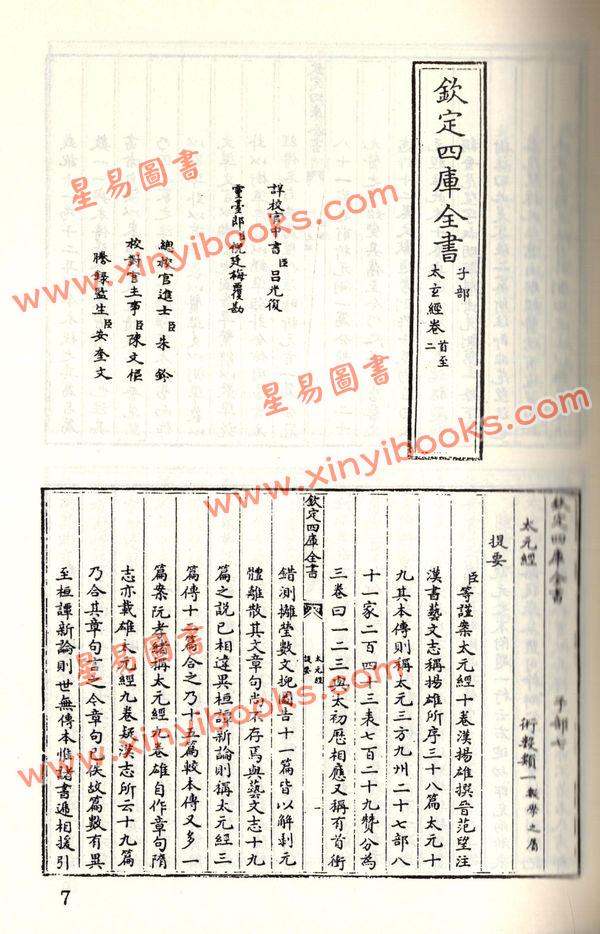 欽定四庫全書
子部
太玄經卷首至二
詳校官中書臣呂光復
靈臺郎臣倪廷梅覆勘
總校官進士臣朱鈐
校對官主事臣陳文樞
謄錄監生臣安奎文
欽定四庫全書
子部七
太元經
術數類一數學之屬
提要
臣等謹案太元經十卷漢揚雄撰晉范望注
漢書藝文志稱揚雄所序三十八篇太元十
九其本傳則稱太元三方九州二十七部八
十一家二百四十三表七百二十九贊分為
三卷曰一二三與太初歷相應又稱有首衝
欽定四庫全書
太元經
提要
錯測攡瑩數文掜圖告十一篇皆以解剥元
體離散其文章句尚不存焉與藝文志十九
篇之說已相違異桓譚新論則稱太元經三
篇傳十二篇合之乃十五篇較本傳又多一
篇案阮孝緒稱太元經九卷雄自作章句隋
志亦載雄太元經九卷疑漢志所云十九篇
乃合其章句言之今章句已佚故篇數有異
至桓譚新論則世無傳本惟諸書遞相援引
7
星易圖書
www.xinyibooks.com
星易圖書
www.xinyibooks.com
星易圖書
www.xinyibooks.com